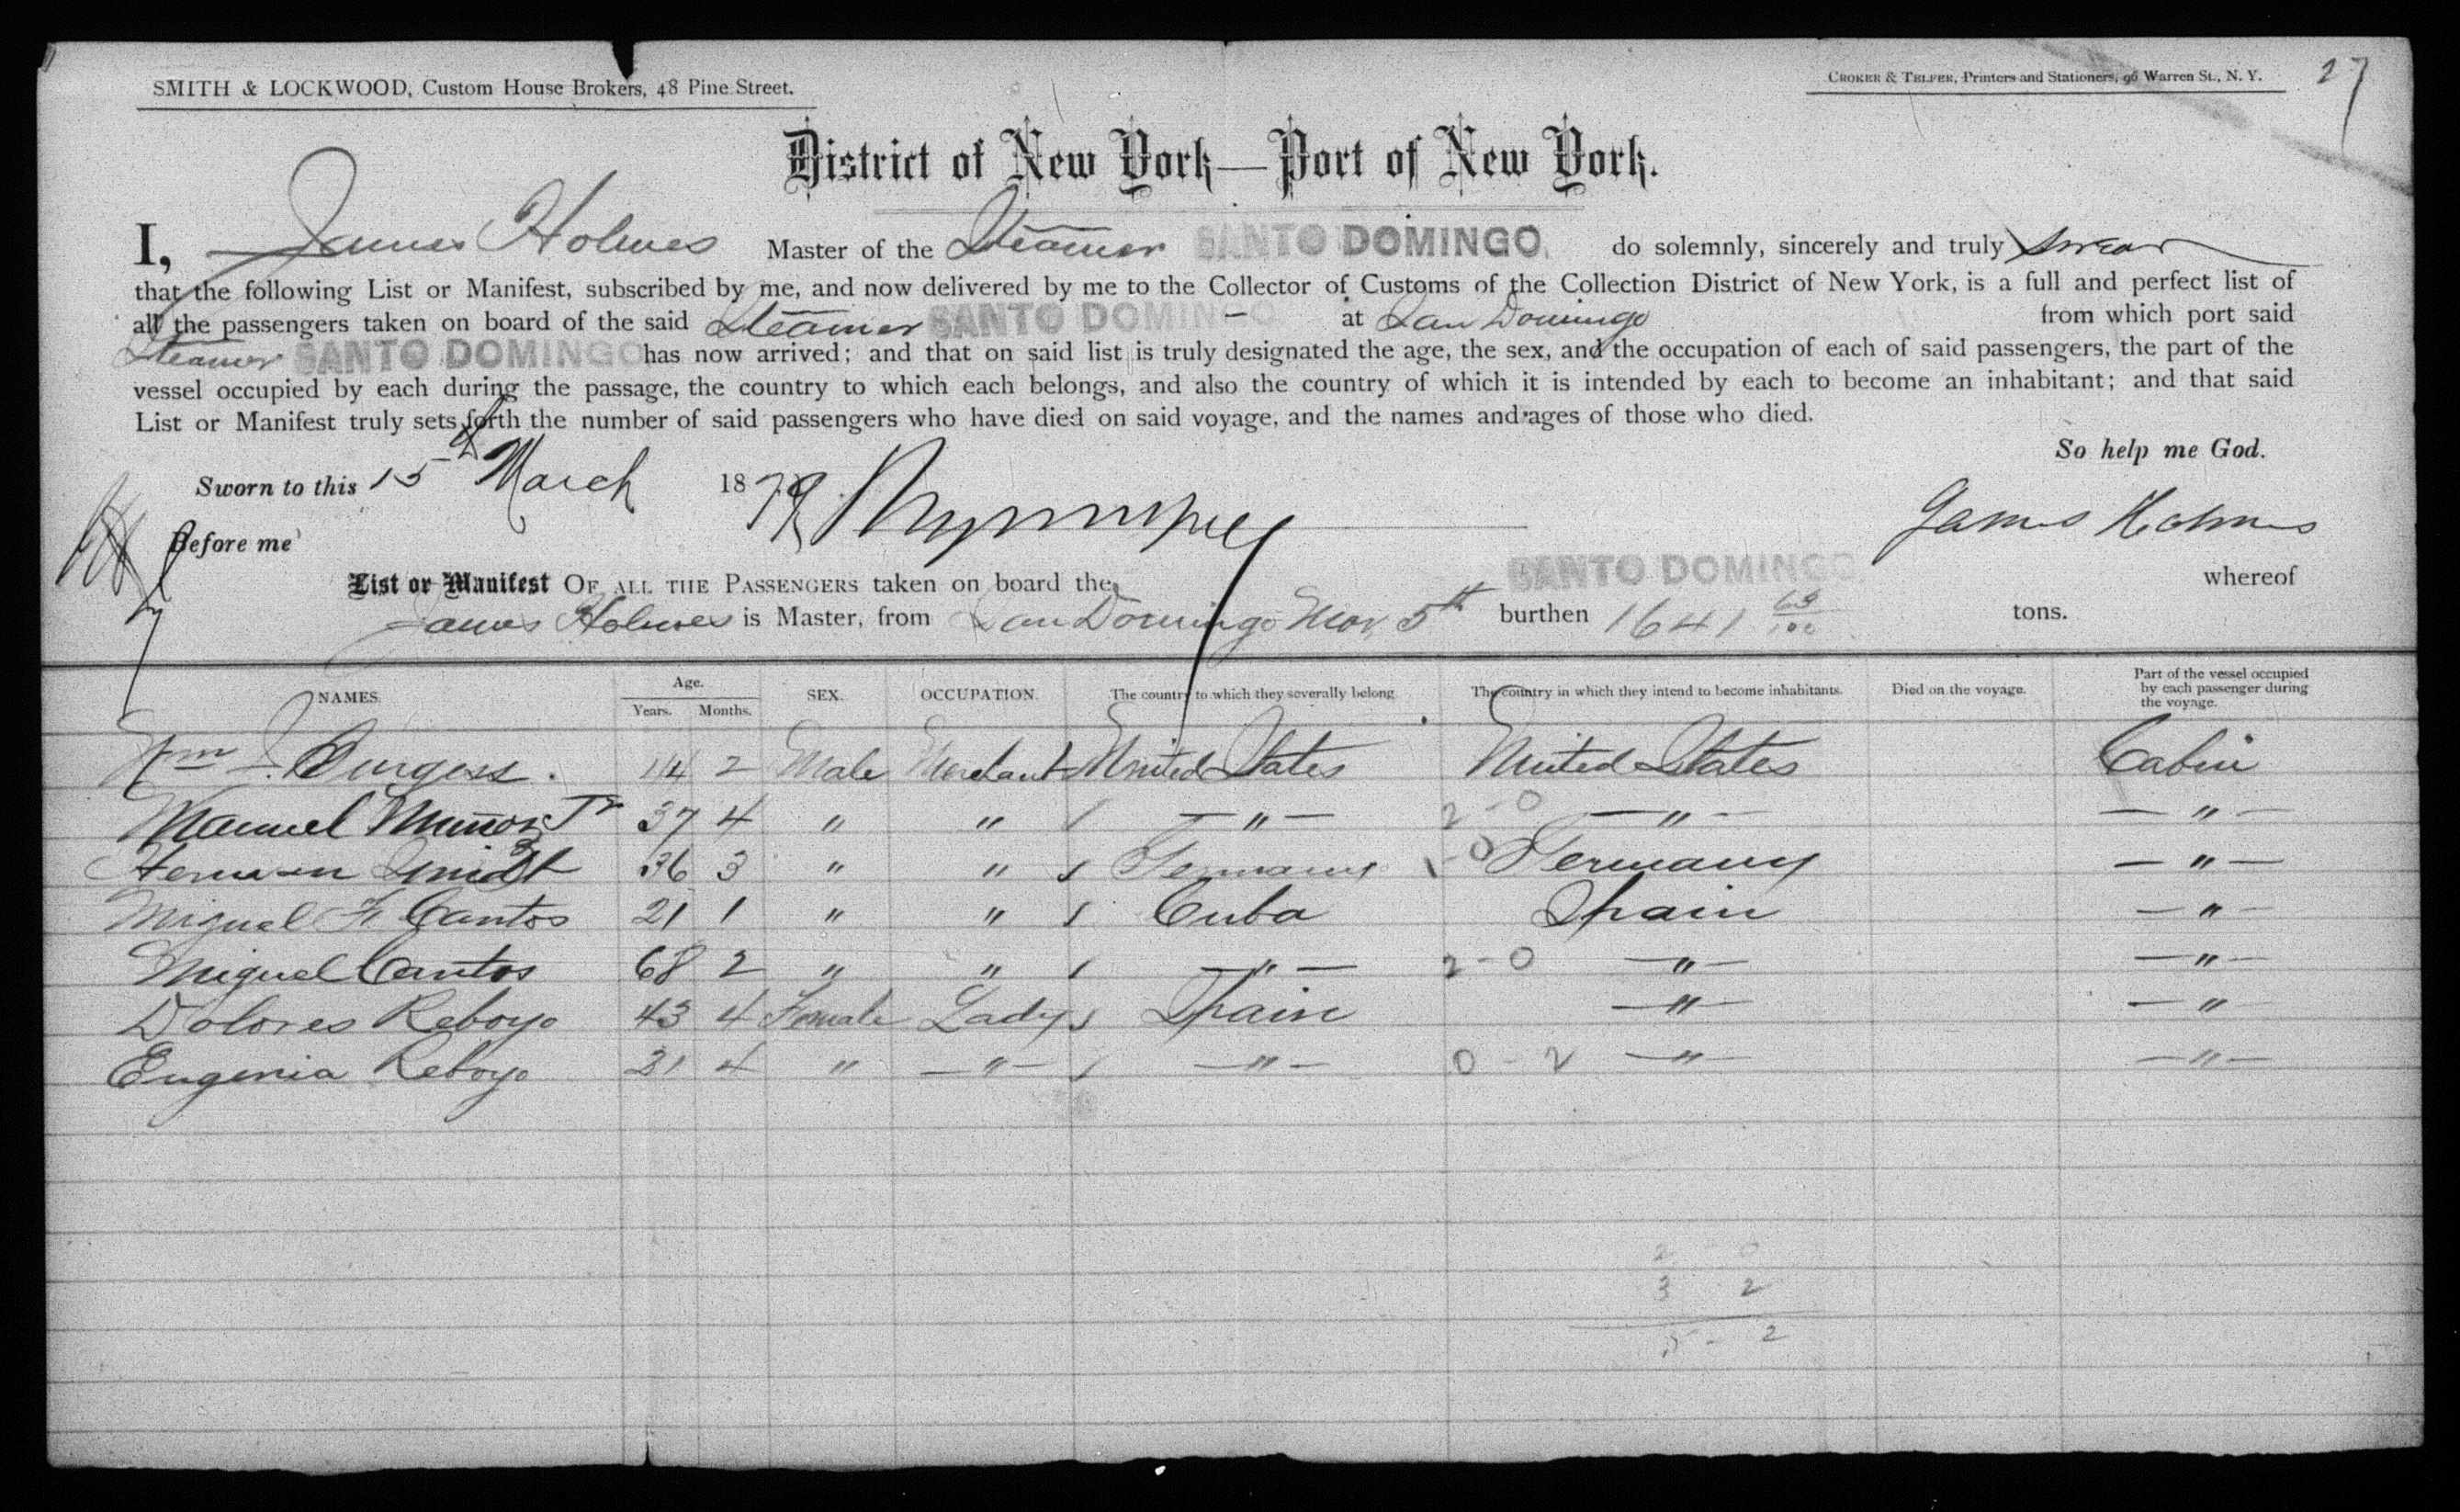 SMITH & LOCKWOOD, Custom House Brokers, 48 Pine Street.
CROKER & TELFER, Printers and Stationers, 96 Warren St., N. Y.
27
District of New York—Port of New York.
I, James Holmes Master of the Steamer SANTO DOMINGO. do solemnly, sincerely and truly swear
that the following List or Manifest, subscribed by me, and now delivered by me to the Collector of Customs of the Collection District of New York, is a full and perfect list of
all the passengers taken on board of the said Steamer SANTO DOMINGO at San Domingo from which port said
Steamer SANTO DOMINGO has now arrived; and that on said list is truly designated the age, the sex, and the occupation of each of said passengers, the part of the
vessel occupied by each during the passage, the country to which each belongs, and also the country of which it is intended by each to become an inhabitant; and that said
List or Manifest truly sets forth the number of said passengers who have died on said voyage, and the names and ages of those who died.
So help me God.
Sworn to this 15th March 1879
James Holmes
Before me
List or Manifest OF ALL THE PASSENGERS taken on board the SANTO DOMINGO. whereof
James Holmes is Master, from San Domingo Mar 5th burthen 1641 63/100 tons.
NAMES. Age. Years. Months. SEX. OCCUPATION. The country to which they severally belong. The country in which they intend to become inhabitants. Died on the voyage. Part of the vessel occupied by each passenger during the voyage.
Wm J. Burgess. 44 2 Male Merchant United States United States Cabin
Manuel Jr 37 4 " " / — " — 2 - 0 — " — — " —
Herman 36 3 " " / Germany 1 - 0 Germany — " —
Miguel F. Cantos 21 1 " " / Cuba Spain — " —
Miguel Cantos 68 2 " " / — " — 2 - 0 — " — — " —
Dolores Reboyo 43 4 Female Lady / Spain — " — — " —
Eugenia Reboyo 21 4 " — " — / — " — 0 - 2 — " — — " —
2 - 0
3 2
5 - 2